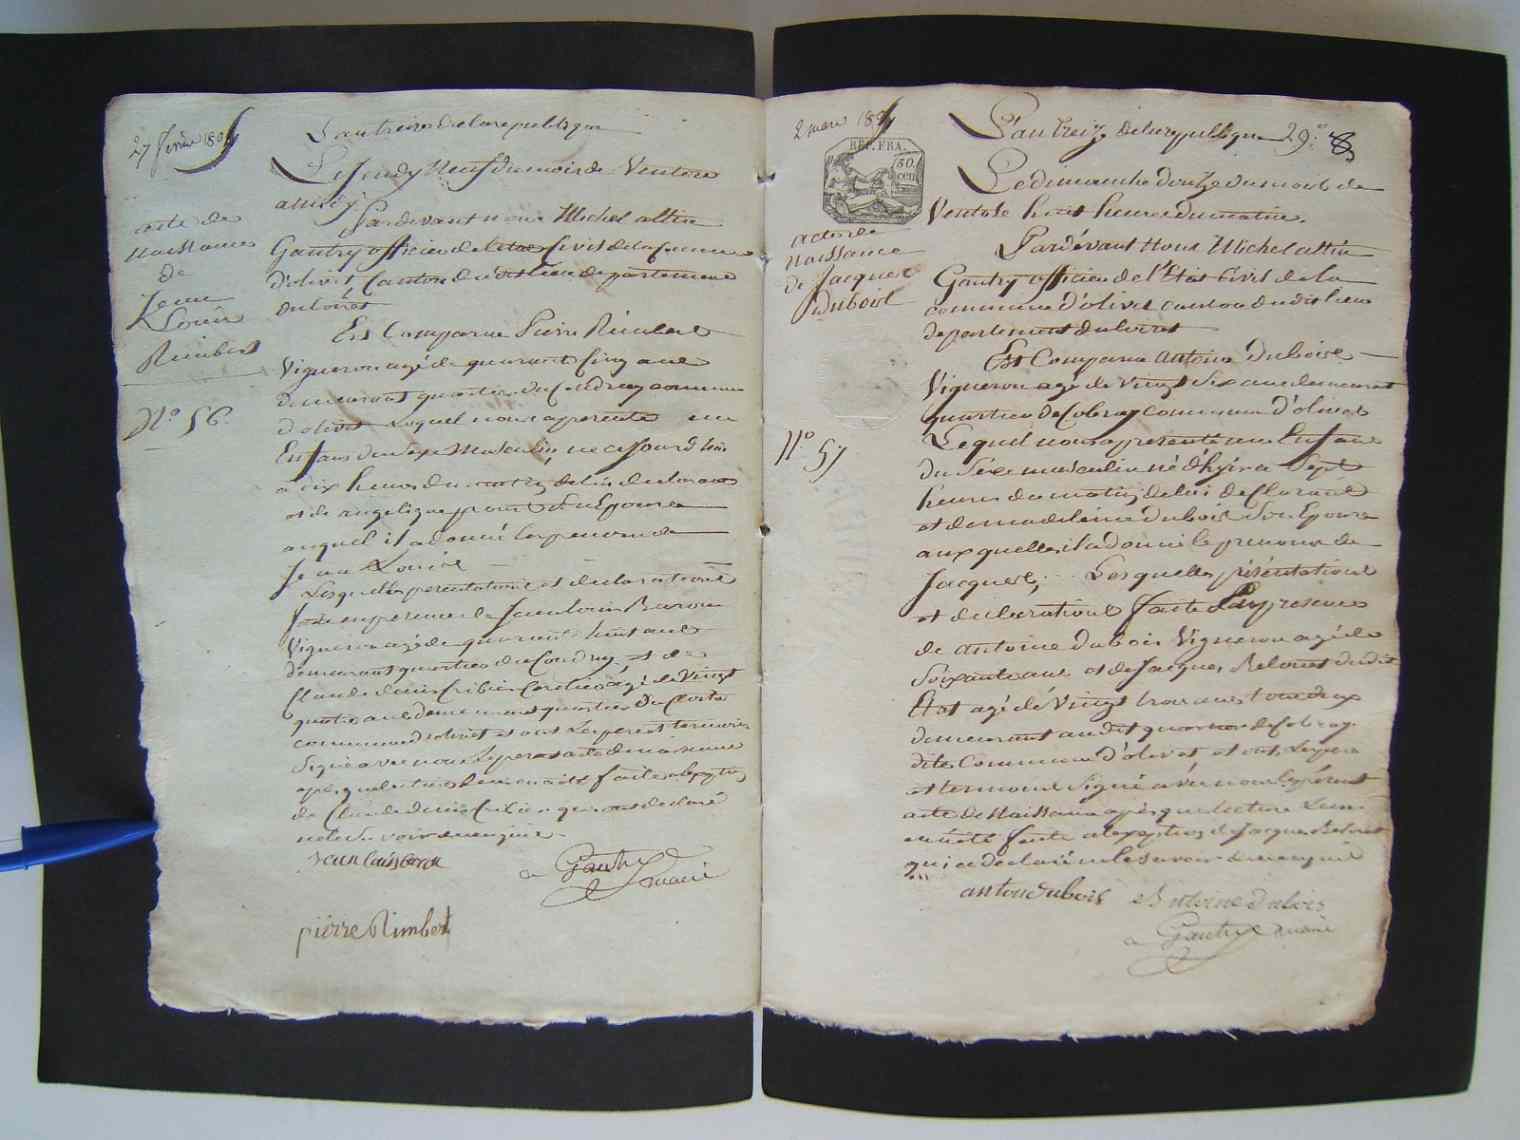 27 février 180
L'an treize de la republique
Le jeudy Neuf du mois de Ventose
a midy
Pardevant nous Michel
Gautry officier de l'etat Civil de la commune
d'olivet Canton du dit lieu departement
du loiret
acte de
naissance
de
Jean
Louis
Rimbert
N.º 56.
Est Comparu Pierre Rimbert
Vigneron agé de quarante Cinq ans
demeurant quartier du Coudray commune
d'olivet Lequel nous a presenté un
Enfant du sexe Masculin, né ce jourd'huy
a dix heures du matin, de lui declarant
et de son Epouse
auquel il a donné les prenoms de
Jean Louis
Lesquelles presentations et declarations
faite en presence de Jean louis Baron
Vigneron agé de quarante huit ans
demeurant quartier du Coudray, et de
Claude denis agé de Vingt
quatre ans demeurant quartier
commune d'olivet et ont Les pere et temoins
Signé avec nous Le present acte de naissance
apres que lecture Leur en a été faite a l'exeption
de Claude denis qui nous a declaré
ne le Savoir de ce enquis
Jean louis baron
Gautry maire
pierre Rimbert
2 mars 180
REP. FRA.
50.
cen
L'an treize de la republique 29.e 8
Le dimanche douze du mois de
Ventose huit heures du matin.
acte de
naissance
de Jacques
Dubois
Pardevant Nous Michel
Gautry officier de l'Etat Civil de la
commune d'olivet canton du dit lieu
departement du loiret
Est Comparu antoine Dubois
Vigneron agé de Vingt Six ans demeurant
quartier de Cobray commune d'olivet
N.º 57
Lequel nous a presenté un Enfant
du Sexe masculin né d'hyer a Sept
heures du matin, de lui declarant
et de madeleine Dubois Son Epouse
auxquelles il a donné le prenom de
Jacques; Lesquelles présentations
et declarations faite En presence
de antoine Dubois Vigneron agé de
Soixante ans et de Jacques Relouet dudit
Etat agé de Vingt trois ans tous deux
demeurant au dit quartier de Cobray
dite Commune d'olivet et ont, Les pere
et temoins Signé avec nous le présent
acte de Naissance apres que lecture Leur
en a été faite a l'exeption de Jacques Relouet
qui a declaré ne le Savoir de ce enquis
anton dubois Antoine dubois
Gautry maire